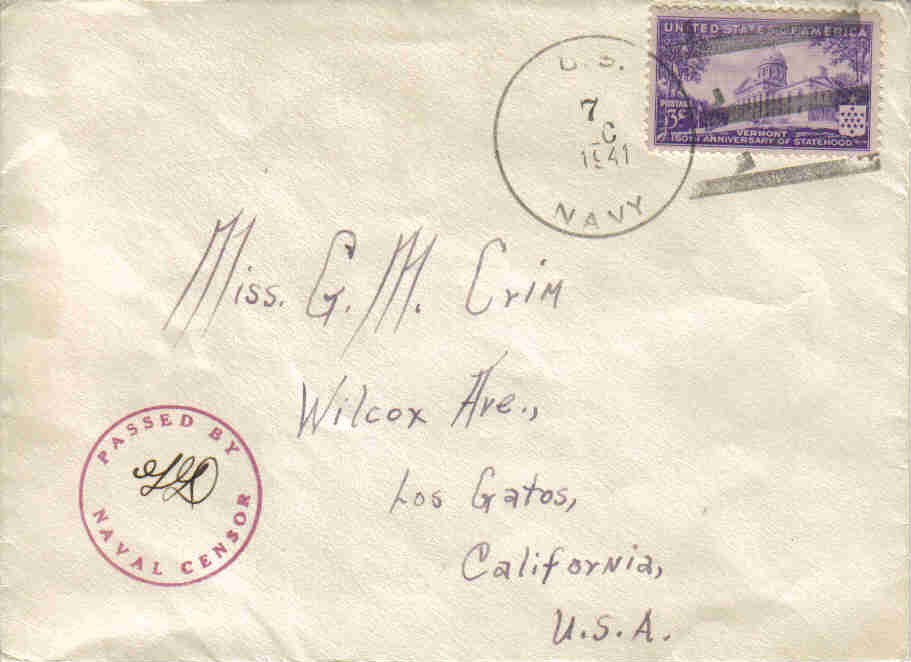 UNITED STATES OF AMERICA
POSTAGE
3¢
VERMONT
150TH ANNIVERSARY OF STATEHOOD
U.S.
7
1941
NAVY
Miss. G. M. Crim
Wilcox Ave.,
Los Gatos,
California,
U.S.A.
PASSED BY
NAVAL CENSOR